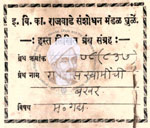 इ. वि. का. राजवाडे संशोधन मंडळ धुळें.
हस्त लिखित ग्रंथ संग्रह
ग्रंथ क्रमांक ७८(८३७
ग्रंथ नाम रामस्वामीची
बखर
विषय म. गद्य.